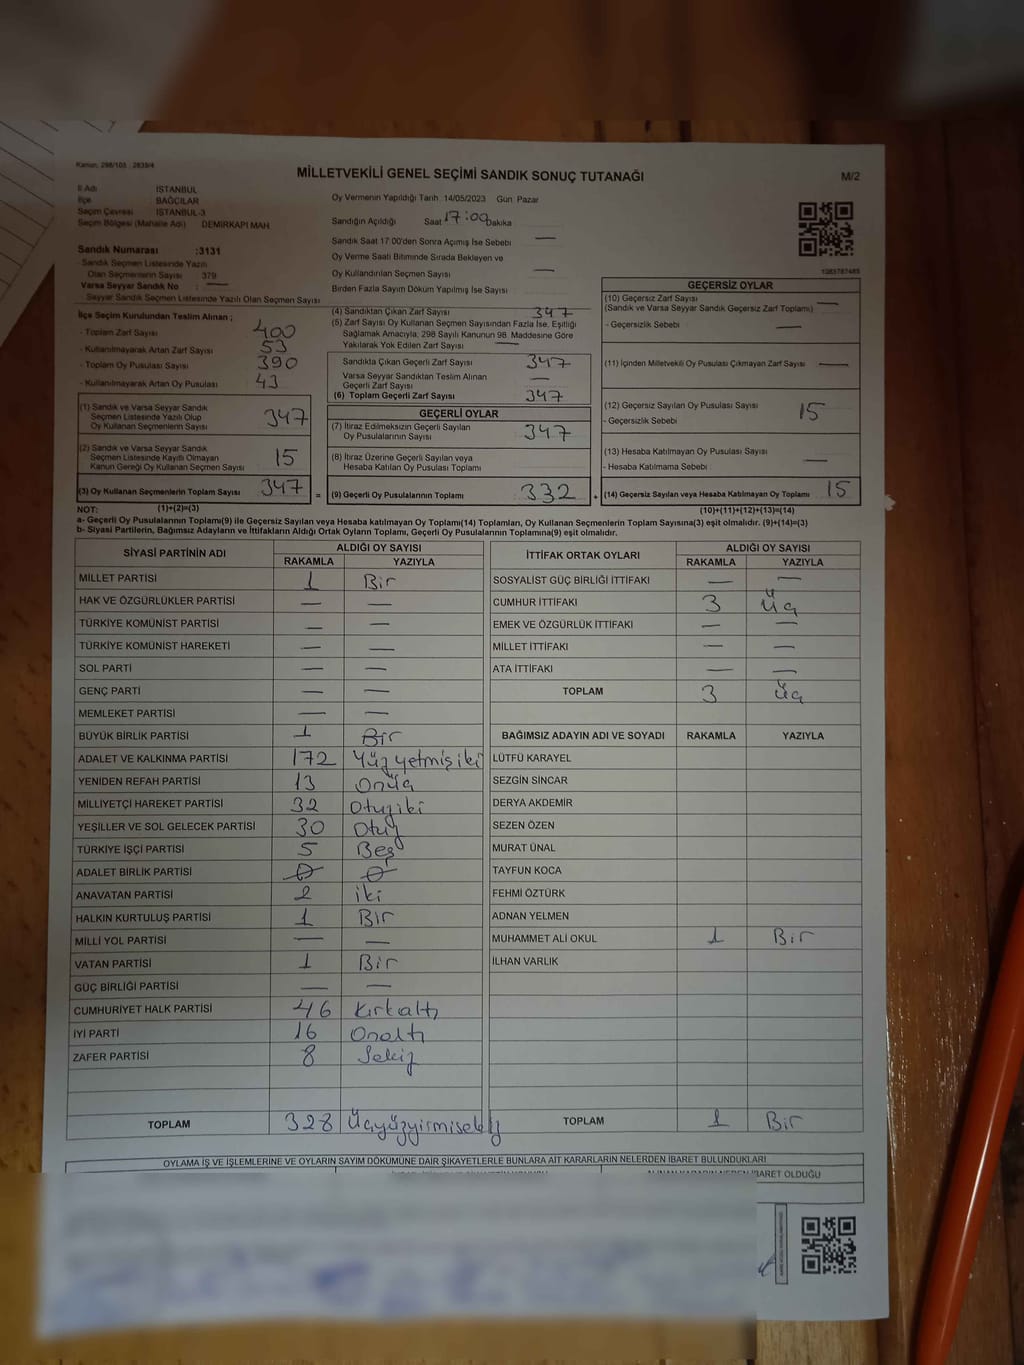 Kanun: 298/105 : 2839/4
MİLLETVEKİLİ GENEL SEÇİMİ SANDIK SONUÇ TUTANAĞI
M/2
İl Adı İSTANBUL
İlçe BAĞCILAR
Seçim Çevresi İSTANBUL-3
Seçim Bölgesi (Mahalle Adı) DEMİRKAPI MAH
Sandık Numarası :3131
- Sandık Seçmen Listesinde Yazılı
Olan Seçmenlerin Sayısı 379
Varsa Seyyar Sandık No : —
Seyyar Sandık Seçmen Listesinde Yazılı Olan Seçmen Sayısı
Oy Vermenin Yapıldığı Tarih 14/05/2023 Gün Pazar
Sandığın Açıldığı Saat 17:00 Dakika
Sandık Saat 17.00'den Sonra Açımış İse Sebebi —
Oy Verme Saati Bitiminde Sırada Bekleyen ve
Oy Kullandırılan Seçmen Sayısı —
Birden Fazla Sayım Döküm Yapılmış İse Sayısı
1083787485
İlçe Seçim Kurulundan Teslim Alınan ;
- Toplam Zarf Sayısı 400
- Kullanılmayarak Artan Zarf Sayısı 53
- Toplam Oy Pusulası Sayısı 390
- Kullanılmayarak Artan Oy Pusulası 43
(1) Sandık ve Varsa Seyyar Sandık
Seçmen Listesinde Yazılı Olup
Oy Kullanan Seçmenlerin Sayısı 347
(2) Sandık ve Varsa Seyyar Sandık
Seçmen Listesinde Kayıtlı Olmayan
Kanun Gereği Oy Kullanan Seçmen Sayısı 15
(3) Oy Kullanan Seçmenlerin Toplam Sayısı 347 =
(4) Sandıktan Çıkan Zarf Sayısı 347
(5) Zarf Sayısı Oy Kullanan Seçmen Sayısından Fazla İse, Eşitliği
Sağlamak Amacıyla; 298 Sayılı Kanunun 98. Maddesine Göre
Yakılarak Yok Edilen Zarf Sayısı —
Sandıkta Çıkan Geçerli Zarf Sayısı 347
Varsa Seyyar Sandıktan Teslim Alınan
Geçerli Zarf Sayısı —
(6) Toplam Geçerli Zarf Sayısı 347
GEÇERLİ OYLAR
(7) İtiraz Edilmeksizin Geçerli Sayılan
Oy Pusulalarının Sayısı 347
(8) İtiraz Üzerine Geçerli Sayılan veya
Hesaba Katılan Oy Pusulası Toplamı
(9) Geçerli Oy Pusulalarının Toplamı 332 +
GEÇERSİZ OYLAR
(10) Geçersiz Zarf Sayısı —
(Sandık ve Varsa Seyyar Sandık Geçersiz Zarf Toplamı)
- Geçersizlik Sebebi —
(11) İçinden Milletvekili Oy Pusulası Çıkmayan Zarf Sayısı —
(12) Geçersiz Sayılan Oy Pusulası Sayısı 15
- Geçersizlik Sebebi
(13) Hesaba Katılmayan Oy Pusulası Sayısı
- Hesaba Katılmama Sebebi —
(14) Geçersiz Sayılan veya Hesaba Katılmayan Oy Toplamı 15
NOT: (1)+(2)=(3)
(10)+(11)+(12)+(13)=(14)
a- Geçerli Oy Pusulalarının Toplamı(9) ile Geçersiz Sayılan veya Hesaba katılmayan Oy Toplamı(14) Toplamları, Oy Kullanan Seçmenlerin Toplam Sayısına(3) eşit olmalıdır. (9)+(14)=(3)
b- Siyasi Partilerin, Bağımsız Adayların ve İttifakların Aldığı Ortak Oyların Toplamı, Geçerli Oy Pusulalarının Toplamına(9) eşit olmalıdır.
SİYASİ PARTİNİN ADI ALDIĞI OY SAYISI
RAKAMLA YAZIYLA
MİLLET PARTİSİ 1 Bir
HAK VE ÖZGÜRLÜKLER PARTİSİ — —
TÜRKİYE KOMÜNİST PARTİSİ — —
TÜRKİYE KOMÜNİST HAREKETİ — —
SOL PARTİ — —
GENÇ PARTİ — —
MEMLEKET PARTİSİ — —
BÜYÜK BİRLİK PARTİSİ 1 Bir
ADALET VE KALKINMA PARTİSİ 172 Yüzyetmişiki
YENİDEN REFAH PARTİSİ 13 Onüç
MİLLİYETÇİ HAREKET PARTİSİ 32 Otuziki
YEŞİLLER VE SOL GELECEK PARTİSİ 30 Otuz
TÜRKİYE İŞÇİ PARTİSİ 5 Beş
ADALET BİRLİK PARTİSİ
ANAVATAN PARTİSİ 2 iki
HALKIN KURTULUŞ PARTİSİ 1 Bir
MİLLİ YOL PARTİSİ — —
VATAN PARTİSİ 1 Bir
GÜÇ BİRLİĞİ PARTİSİ — —
CUMHURİYET HALK PARTİSİ 46 Kırkaltı
İYİ PARTİ 16 Onaltı
ZAFER PARTİSİ 8 Sekiz
TOPLAM 328 Üçyüzyirmisekiz
İTTİFAK ORTAK OYLARI ALDIĞI OY SAYISI
RAKAMLA YAZIYLA
SOSYALİST GÜÇ BİRLİĞİ İTTİFAKI — —
CUMHUR İTTİFAKI 3 Üç
EMEK VE ÖZGÜRLÜK İTTİFAKI — —
MİLLET İTTİFAKI — —
ATA İTTİFAKI — —
TOPLAM 3 Üç
BAĞIMSIZ ADAYIN ADI VE SOYADI RAKAMLA YAZIYLA
LÜTFÜ KARAYEL
SEZGİN SİNCAR
DERYA AKDEMİR
SEZEN ÖZEN
MURAT ÜNAL
TAYFUN KOCA
FEHMİ ÖZTÜRK
ADNAN YELMEN
MUHAMMET ALİ OKUL 1 Bir
İLHAN VARLIK
TOPLAM 1 Bir
OYLAMA İŞ VE İŞLEMLERİNE VE OYLARIN SAYIM DÖKÜMÜNE DAİR ŞİKAYETLERLE BUNLARA AİT KARARLARIN NELERDEN İBARET BULUNDUKLARI
İBARET OLDUĞU